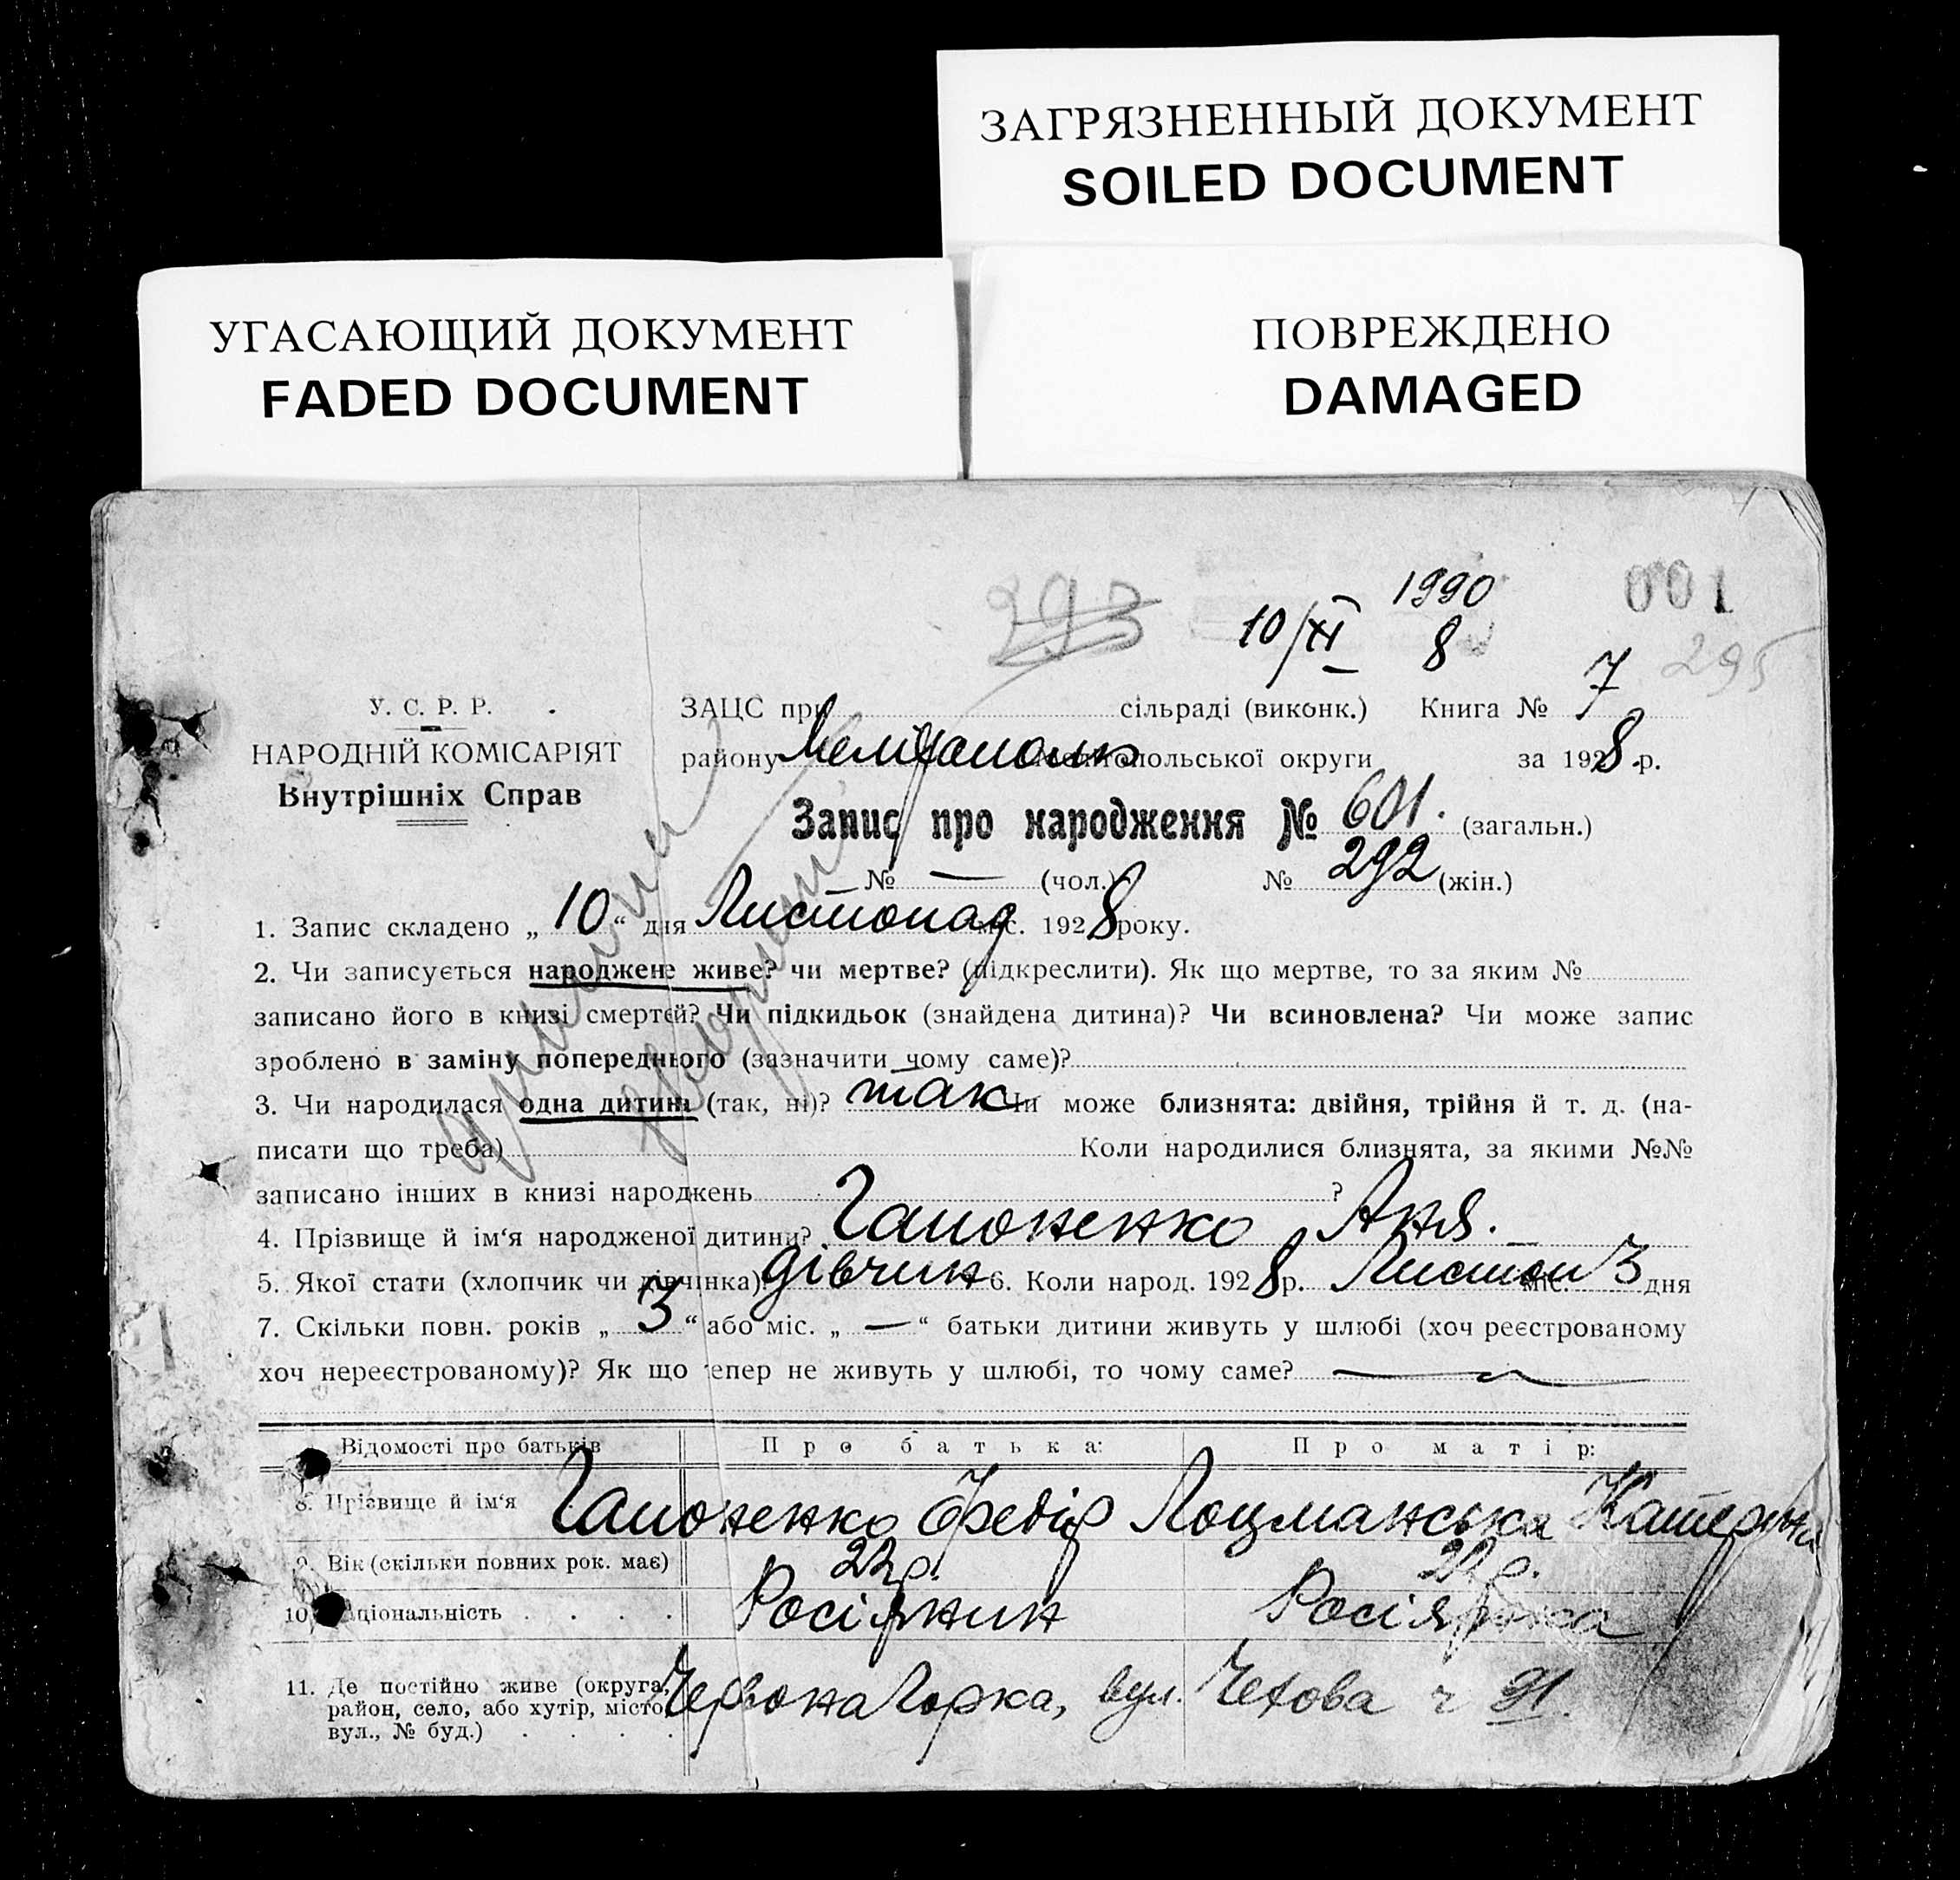 ЗАГРЯЗНЕННЫЙ ДОКУМЕНТ
SOILED DOCUMENT
УГАСАЮЩИЙ ДОКУМЕНТ
FADED DOCUMENT
ПОВРЕЖДЕНО
DAMAGED
293
1990
001
10/XI 8
295
У. С. Р. Р.
НАРОДНІЙ КОМІСАРІЯТ
Внутрішніх Справ
ЗАЦС при сільраді (виконк.) Книга № 7
району Мелітополь Мелітопольської округи за 1928 р.
Запис про народження № 601. (загальн.)
№ — (чол.) № 292 (жін.)
1. Запис складено „ 10 “ дня Листопад міс. 1928 року.
2. Чи записується народжене живе? чи мертве? (підкреслити). Як що мертве, то за яким №
записано його в книзі смертей? Чи підкидьок (знайдена дитина)? Чи всиновлена? Чи може запис
зроблено в заміну попереднього (зазначити чому саме)?
3. Чи народилася одна дитина (так, ні)? так Чи може близнята: двійня, трійня й т. д. (на-
писати що треба) Коли народилися близнята, за якими №№
записано інших в книзі народжень ?
4. Прізвище й ім‘я народженої дитини? Гапоненко Аня.
5. Якої стати (хлопчик чи дівчінка) дівчин 6. Коли народ. 1928 р. Листоп міс. 3 дня
7. Скільки повн. років „ 3 “ або міс. „ — “ батьки дитини живуть у шлюбі (хоч реєстрованому
хоч нереєстрованому)? Як що тепер не живуть у шлюбі, то чому саме? —
Відомості про батьків Про батька: Про матір:
8. Прізвище й ім‘я Гапоненко Федір Лоцманська Катерина
9. Вік (скільки повних рок. має) 22 р. 22 р.
10. Національність . . . . Росіянин Росіянка
11. Де постійно живе (округа, район, село, або хутір, місто, вул., № буд.) . . . . Червона Горка, вул. Чехова ч 91.